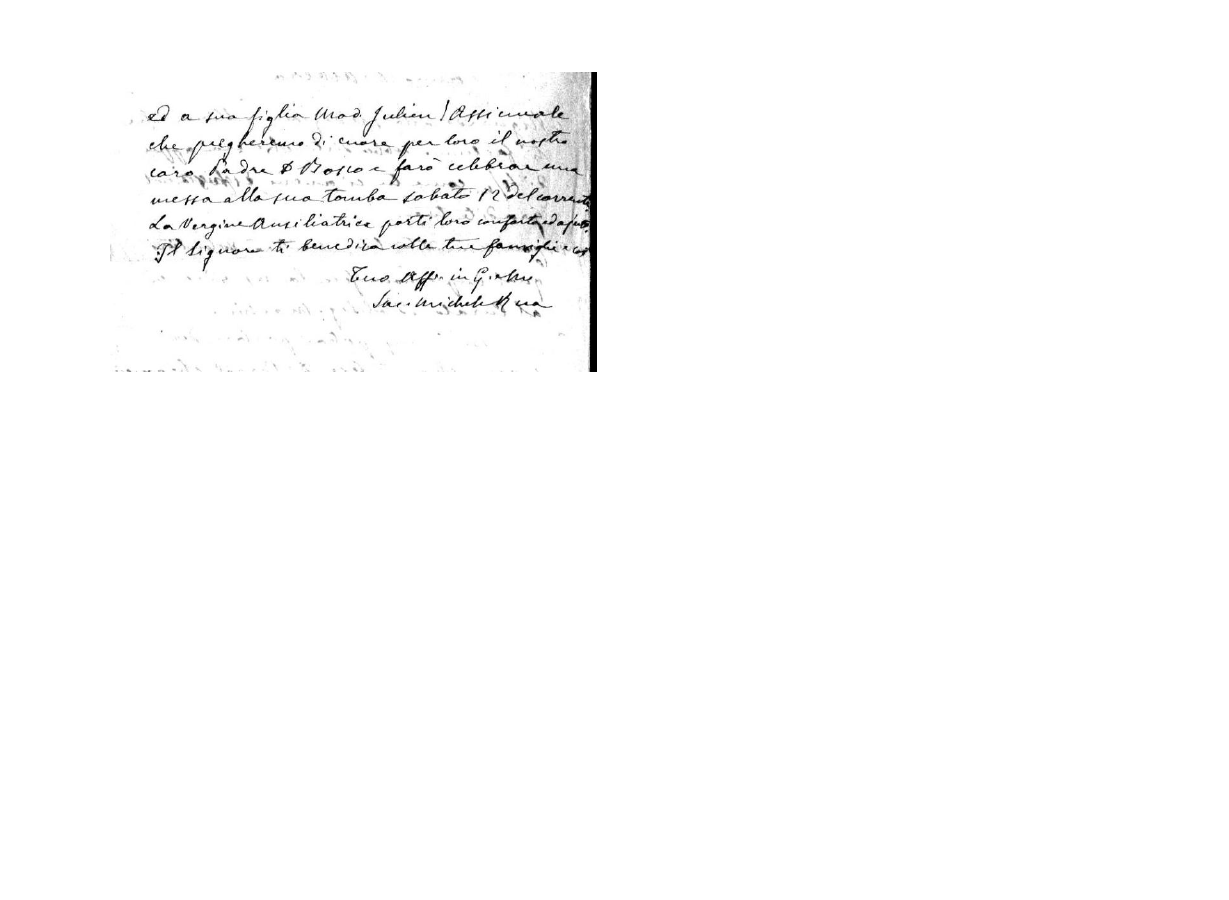 ed a sua figlia Mad. Julien! Assicurale
che pregheremo di cuore per loro il nostro
caro Padre D Bosco e farò celebrare una
messa alla sua tomba sabato 12 del corrente
La Vergine Ausiliatrice porti loro conforto ed
Il Signore ti benedica colle tue famiglie
Tuo Aff. in G. e M.
Sac. Michele Rua